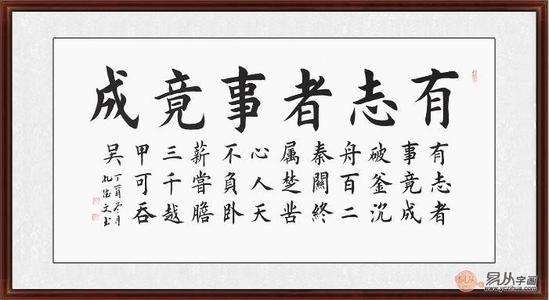 有志者事竟成
有志者
事竟成
破釜沉
舟百二
秦關終
属楚苦
心人天
不負卧
薪嘗膽
三千越
甲可吞
吴
丁酉冬月
孔德文书
易从字画
www.yczihua.com